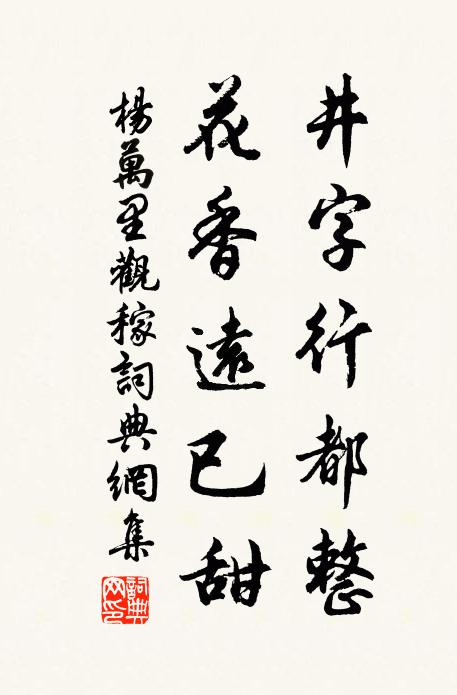 井字行都整
花香遠已甜
楊萬里觀稼詞典網集
詞典網印